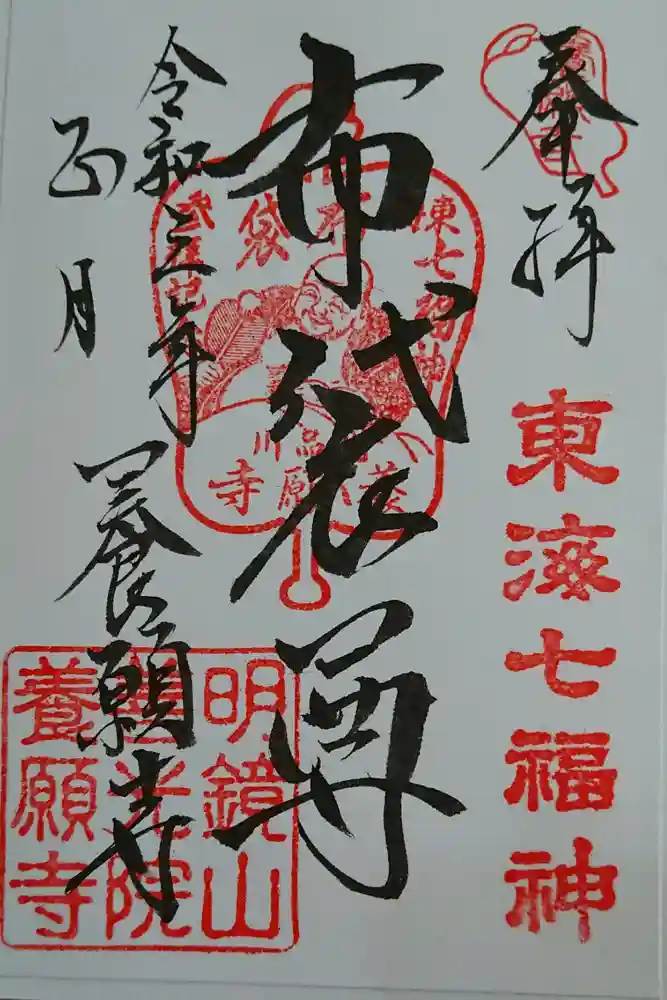 奉拝
東海七福神
布袋尊
東七福神
布袋
品川
養願寺
令和三年
正月
養願寺
明鏡山
善光院
養願寺